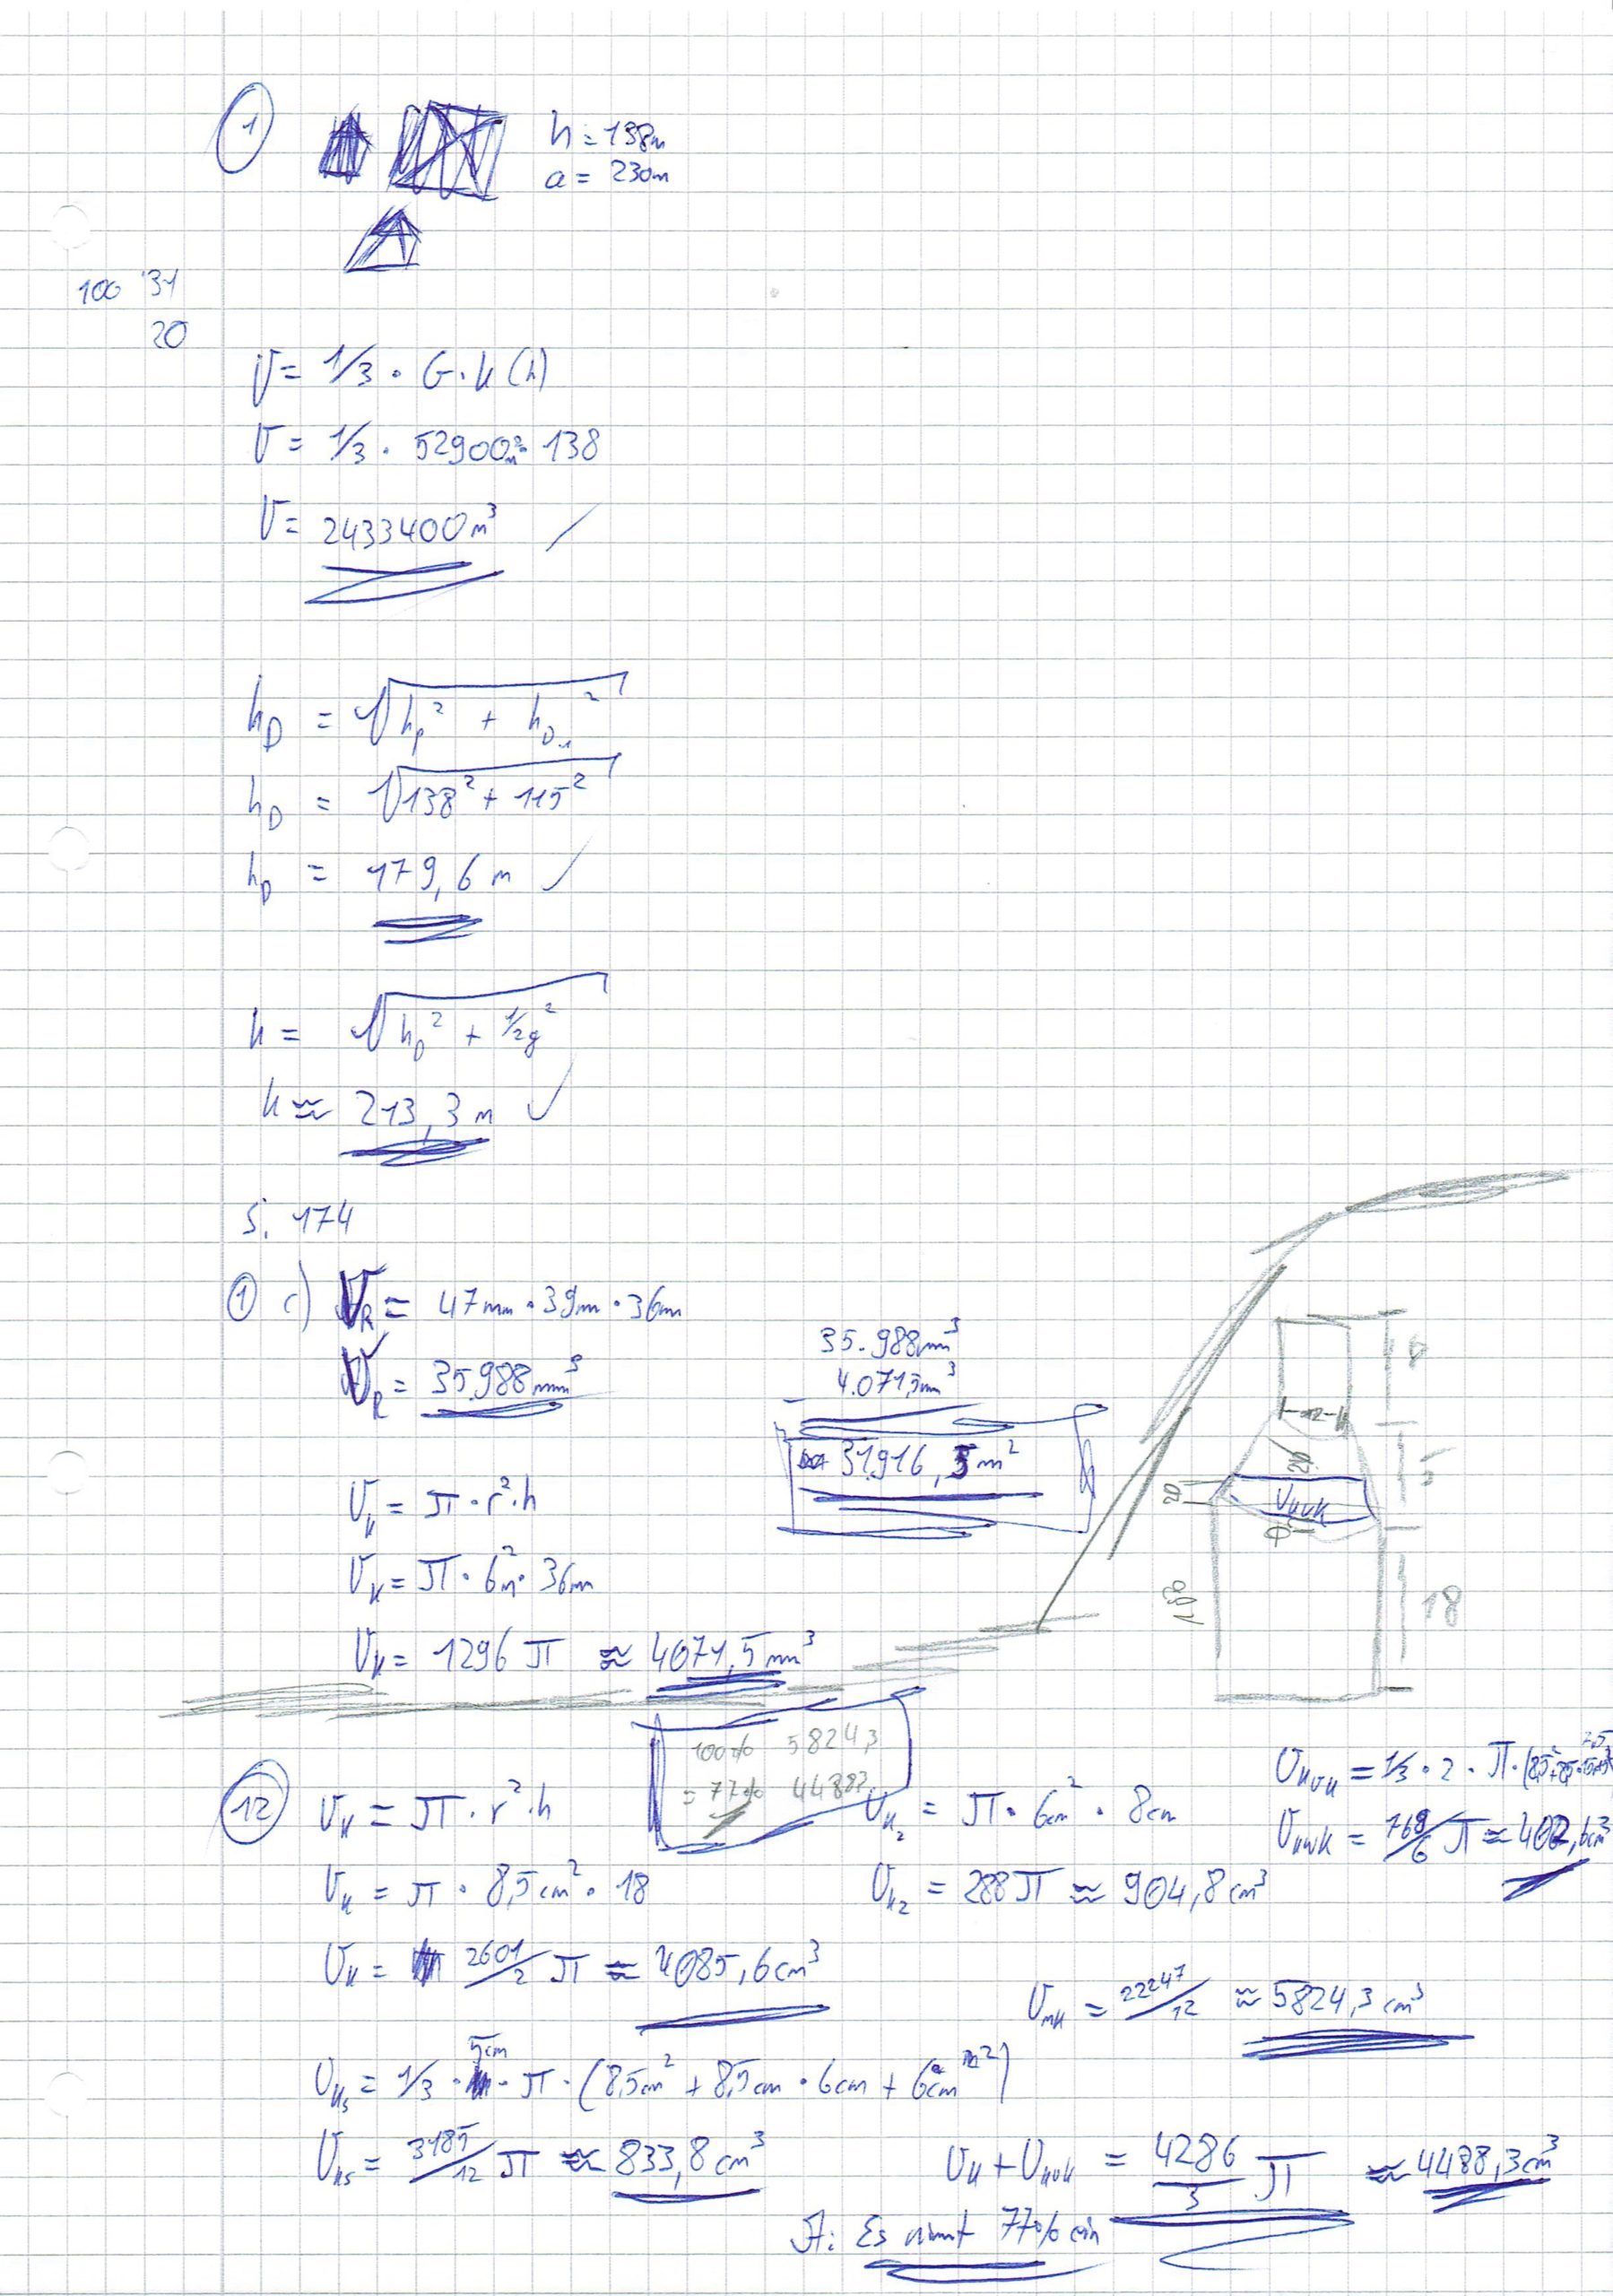 1
h = 138m
a = 230m
100 31
20
V = 1/3 · G · k (h)
V = 1/3 · 52900m² · 138
V = 2433400m³
h_D = √h_p² + h_D.1²
h_D = √138² + 115²
h_D = 179,6 m ✓
k = √h_D² + 1/2g²
k ≈ 213,3 m ✓
S. 174
1 c) V_R = 47mm · 39mm · 36mm
V_R = 35.988mm³
35.988mm³
- 4.071,5mm³
31.916,5m²
V_K = π · r² · h
V_K = π · 6²m · 36mm
V_K = 1296 π ≈ 4071,5mm³
8
5
20
V_KuK
18
180
100% 5824,3
= 77% 4488,3
12 V_K = π · r² · h
V_K = π · 8,5cm² · 18
V_K = 2601/2 π ≈ 4085,6cm³
V_K2 = π · 6cm² · 8cm
V_K2 = 288π ≈ 904,8cm³
V_KuK = 769/6 π ≈ 402,6cm³
V_mK = 22247/12 ≈ 5824,3 cm³
V_Ks = 1/3 · 5cm · π · (8,5cm² + 8,5cm · 6cm + 6cm²)
V_Ks = 3185/12 π ≈ 833,8cm³
V_K + V_KuK = 4286/3 π ≈ 4488,3cm³
A: Es nimmt 77% ein